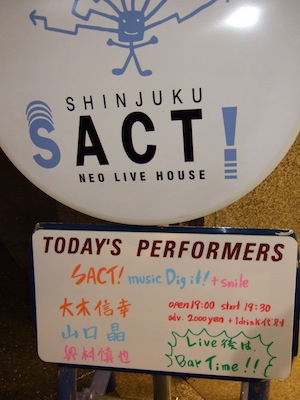 SHINJUKU
SACT!
NEO LIVE HOUSE
TODAY'S PERFORMERS
SACT! music Dig it! + smile
大木信幸
山口晶
奥村慎也
open 19:00 start 19:30
adv. 2000yen + 1drink代別
Live後は
Bar Time!!